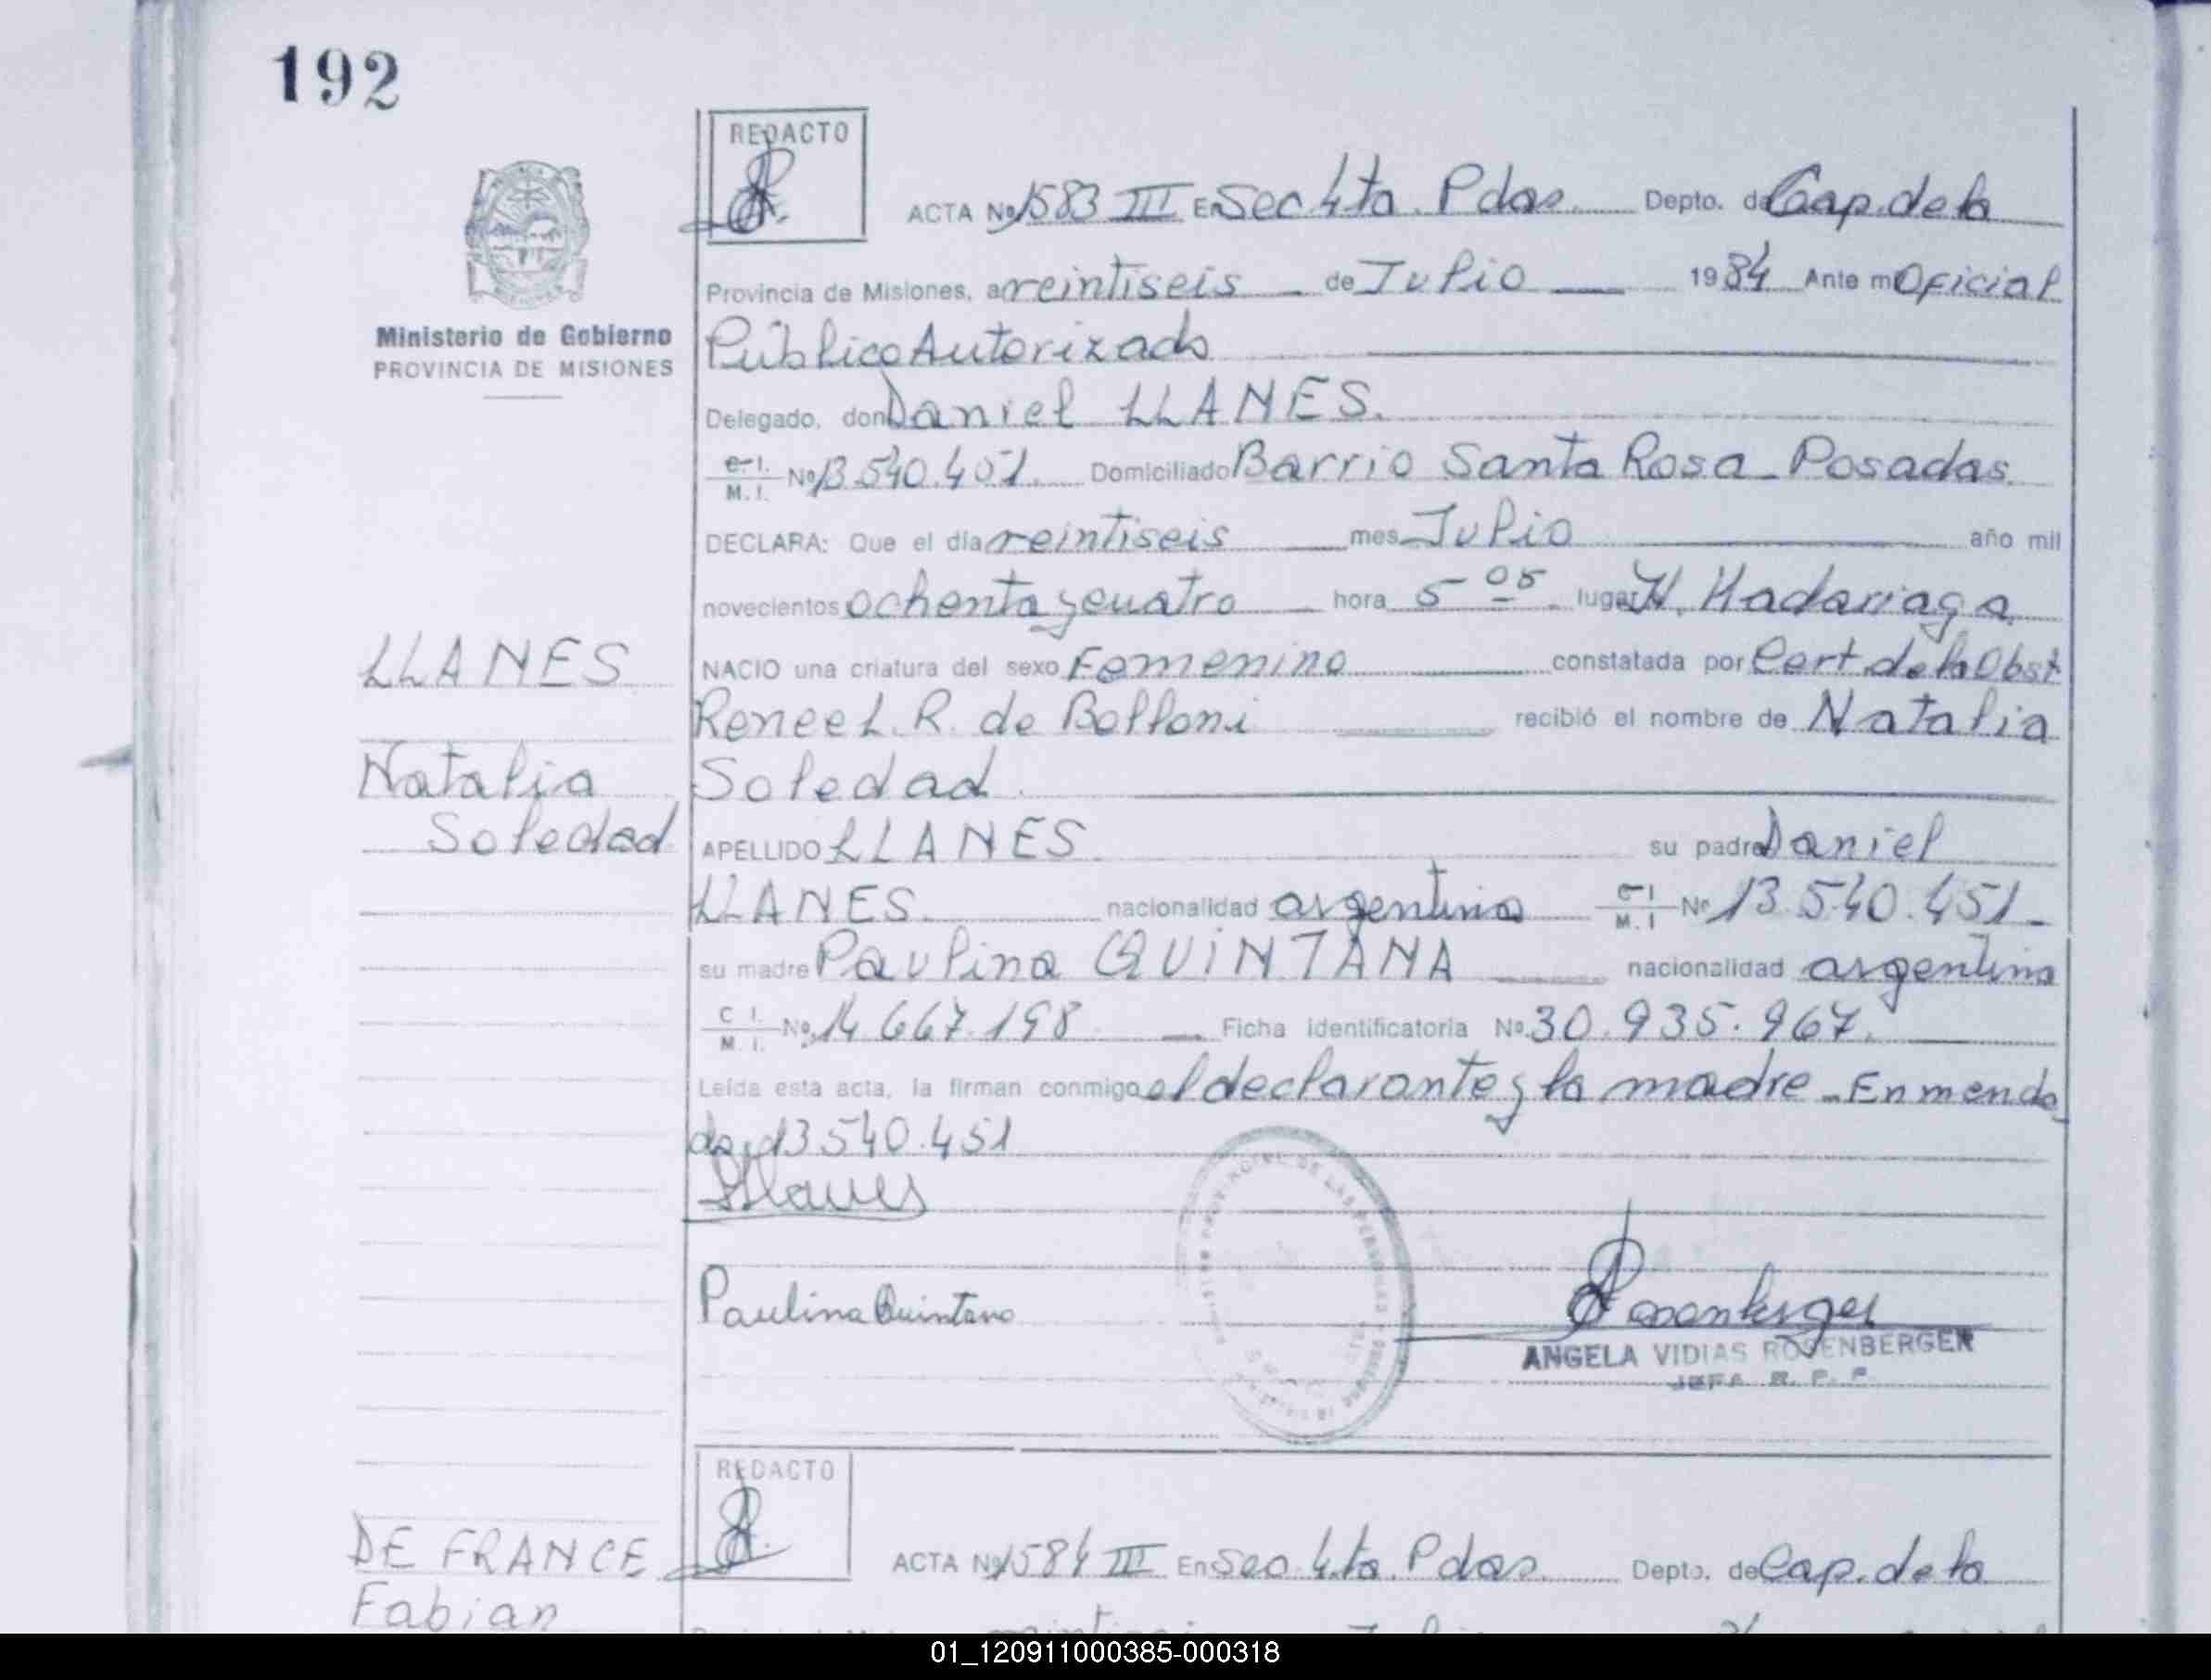 192
REDACTO
ACTA Nº 1583 III En Sec 4ta. Pdas. Depto. de Cap. de la
Provincia de Misiones, a veintiseis de Julio 1984 Ante mi Oficial
Ministerio de Gobierno
PROVINCIA DE MISIONES
Público Autorizado
Delegado, don Daniel LLANES.
C.I. M.I. Nº 13.540.451. Domiciliado Barrio Santa Rosa - Posadas
DECLARA: Que el día veintiseis mes Julio año mil
novecientos ochenta y cuatro hora 5 05 lugar H. Madariaga
LLANES
NACIO una criatura del sexo Femenino constatada por Cert. de la Obst
Renee L. R. de Bolloni recibió el nombre de Natalia
Natalia
Soledad
Soledad
APELLIDO LLANES su padre Daniel
LLANES. nacionalidad argentina C.I. M.I Nº 13.540.451.-
su madre Paulina QUINTANA nacionalidad argentina
C I. M. I. Nº 14.667.198 Ficha identificatoria Nº 30.935.967.
Leída esta acta, la firman conmigo el declarante y la madre.- Enmenda
do: 13540.451
Llanes
Paulina Quintana
Rosenberger
ANGELA VIDIAS ROSENBERGER
JEFA R. P. P.
REDACTO
DE FRANCE
ACTA Nº 1584 III En Sec. 4ta. Pdas. Depto. de Cap. de la
Fabian
01_120911000385-000318